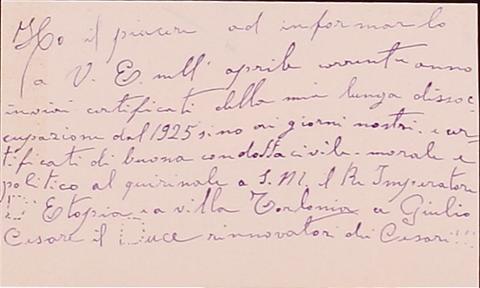 Ho il piacere ad informarlo
a V. E. nell' aprile corrente anno
inviai certificati della mia lunga disoc-
cupazione dal 1925 sino ai giorni nostri. e cer-
tificati di buona condotta civile morale e
politico al quirinale a S. M. il Re Imperatore
D' Etopia e a villa Torlonia a Giulio
Cesare il Duce rinnovatori dei Cesari!!!